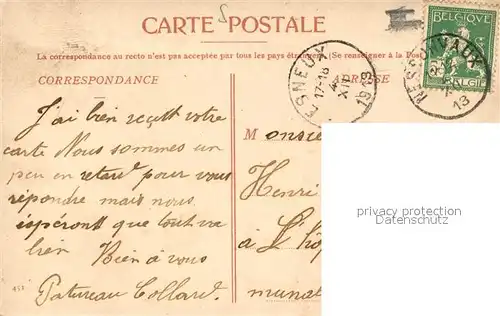 CARTE POSTALE
BELGIQUE
BELGIË
La correspondance au recto n'est pas acceptée par tous les pays étrangers. (Se renseigner à la Post
CORRESPONDANCE
RESSE
ESNEUX
17-18
4
XII
1913
NESSONVAUX
13
J'ai bien reçut votre
carte Nous sommes un
peu en retard pour vous
répondre mais nous
espérons que tout va
bien Bien à vous
Patureau Collard
Monsie
Henri
à l'hôp
muna
privacy protection
Datenschutz